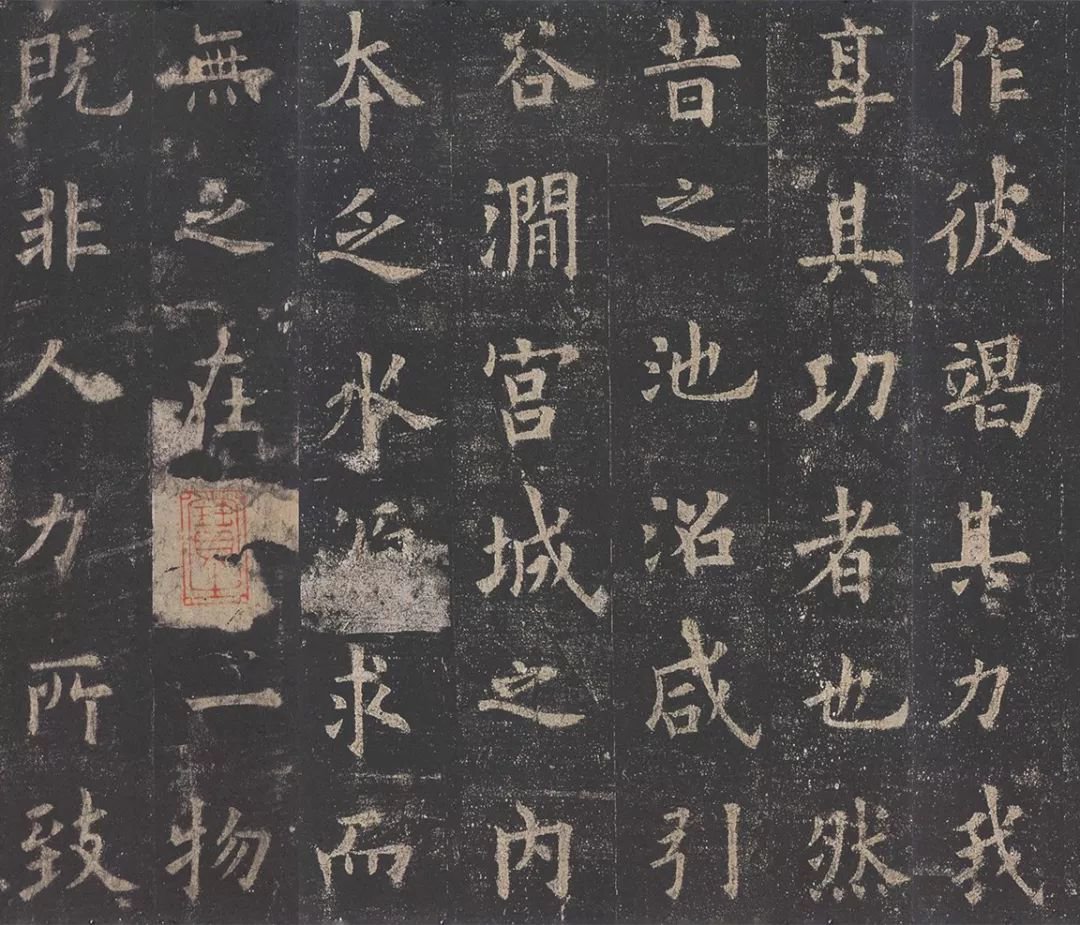 作彼竭其力我
享其功者也然
昔之池沼咸引
谷澗宮城之內
本乏水求而
無之在一物
既非人力所致